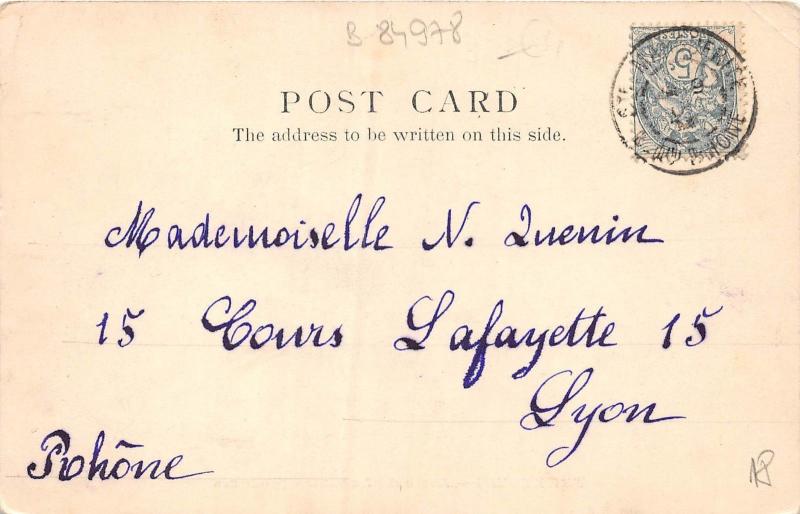 B 84978
POST CARD
The address to be written on this side.
Mademoiselle N. Quenin
15 Cours Lafayette 15
Lyon
Rhône
AP